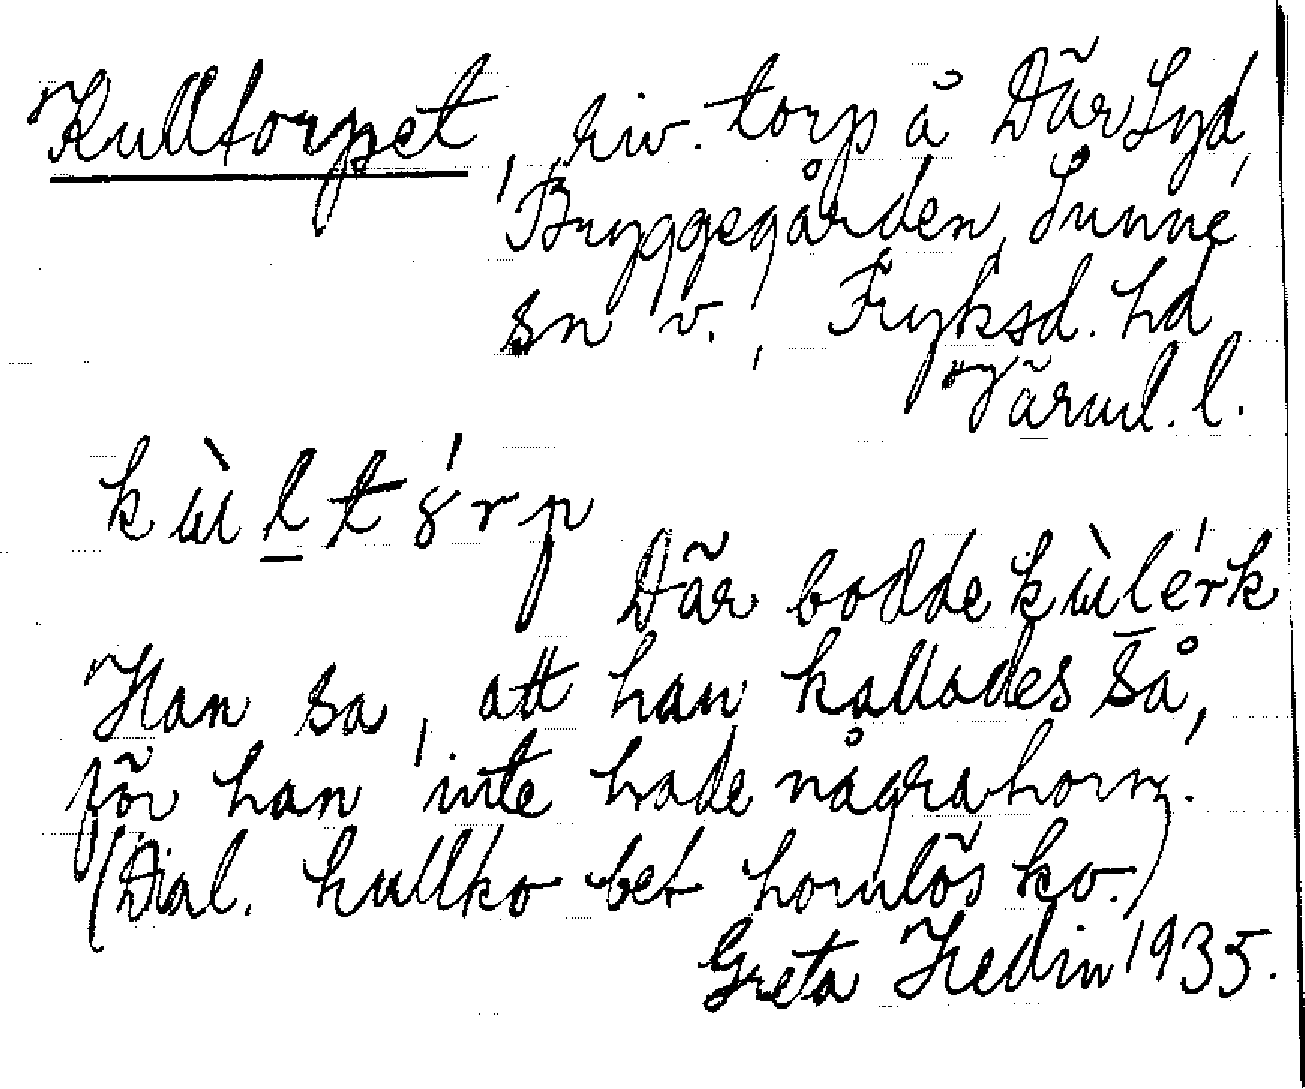 Kulltorpet, riv. torp å Där Syd,
Bryggegården, Sunne
sn v., Fryksd. hd
Värml. l.
kɯ̀ltɤ́rp
Där bodde kɯ̀lérk
Han sa, att han kallades så,
för han inte hade några horn.
(Dial. kullko bet hornlös ko.)
Greta Hedin 1935.